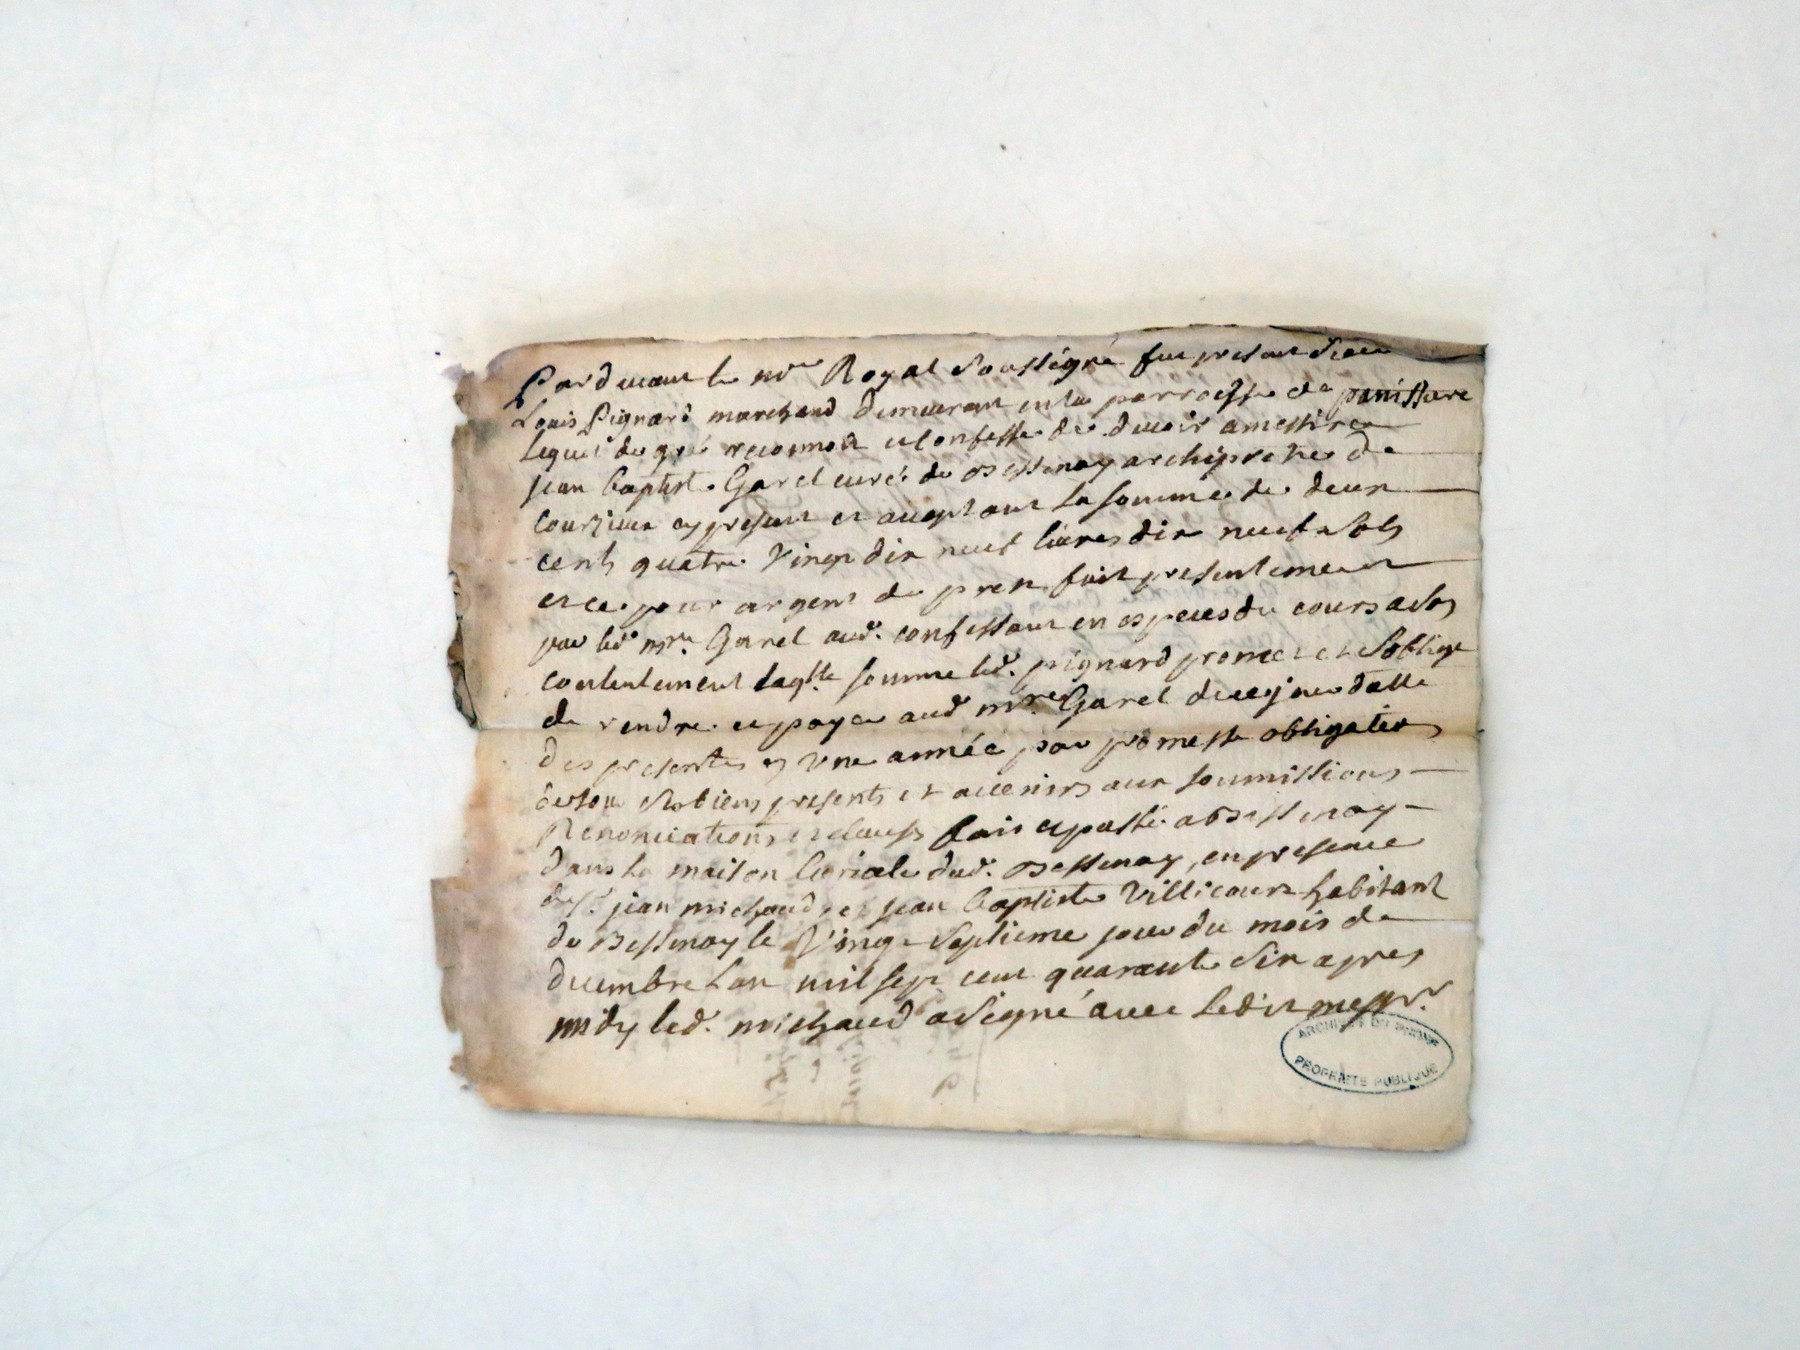 Pardevant le no.re Royal Soussigné fut present Sieur
Louis Pignard marchand demeurant en la parroisse de panissiere
lequel de gré reconnoit et Confesse de devoir a messire
jean baptiste Garel curé de Bessenay archipretre de
Courzieu cy present et acceptant la somme de deux
cents quatre Vingt dix neuf livres dix neuf sols
et ce pour argent de prest fait presentement
par led. m.re Garel aud. confessant en especes du cours a son
contentement laq.lle somme led. pignard promet et S'oblige
de rendre et payer aud. m.re Garel de ce jour datte
des presentes en Une année par promesse obligation
de tous Ses biens presents et avenirs aux soumissions
Renonciations et clauses fait et passé a Bessenay
dans la maison Curiale dud. Bessenay, en presence
de S.r jean michaud, et jean baptiste Villicourt habitant
de Bessenay le Vingt Septieme jour du mois de
decembre L'an mil sept cent quarante Six apres
midy led. michaud a Signé avec ledit mess.re
ARCHIVES DU RHONE
PROPRIETE PUBLIQUE